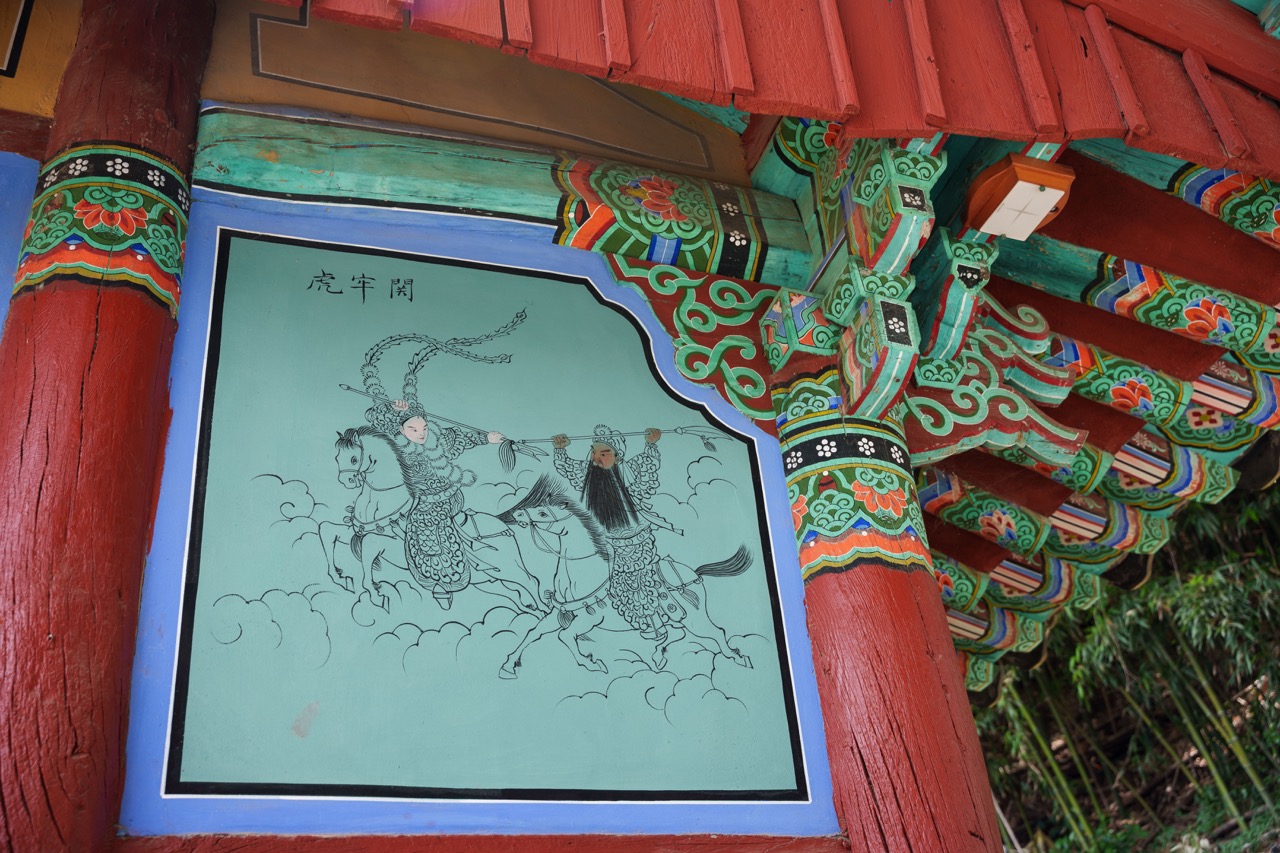 虎牢関